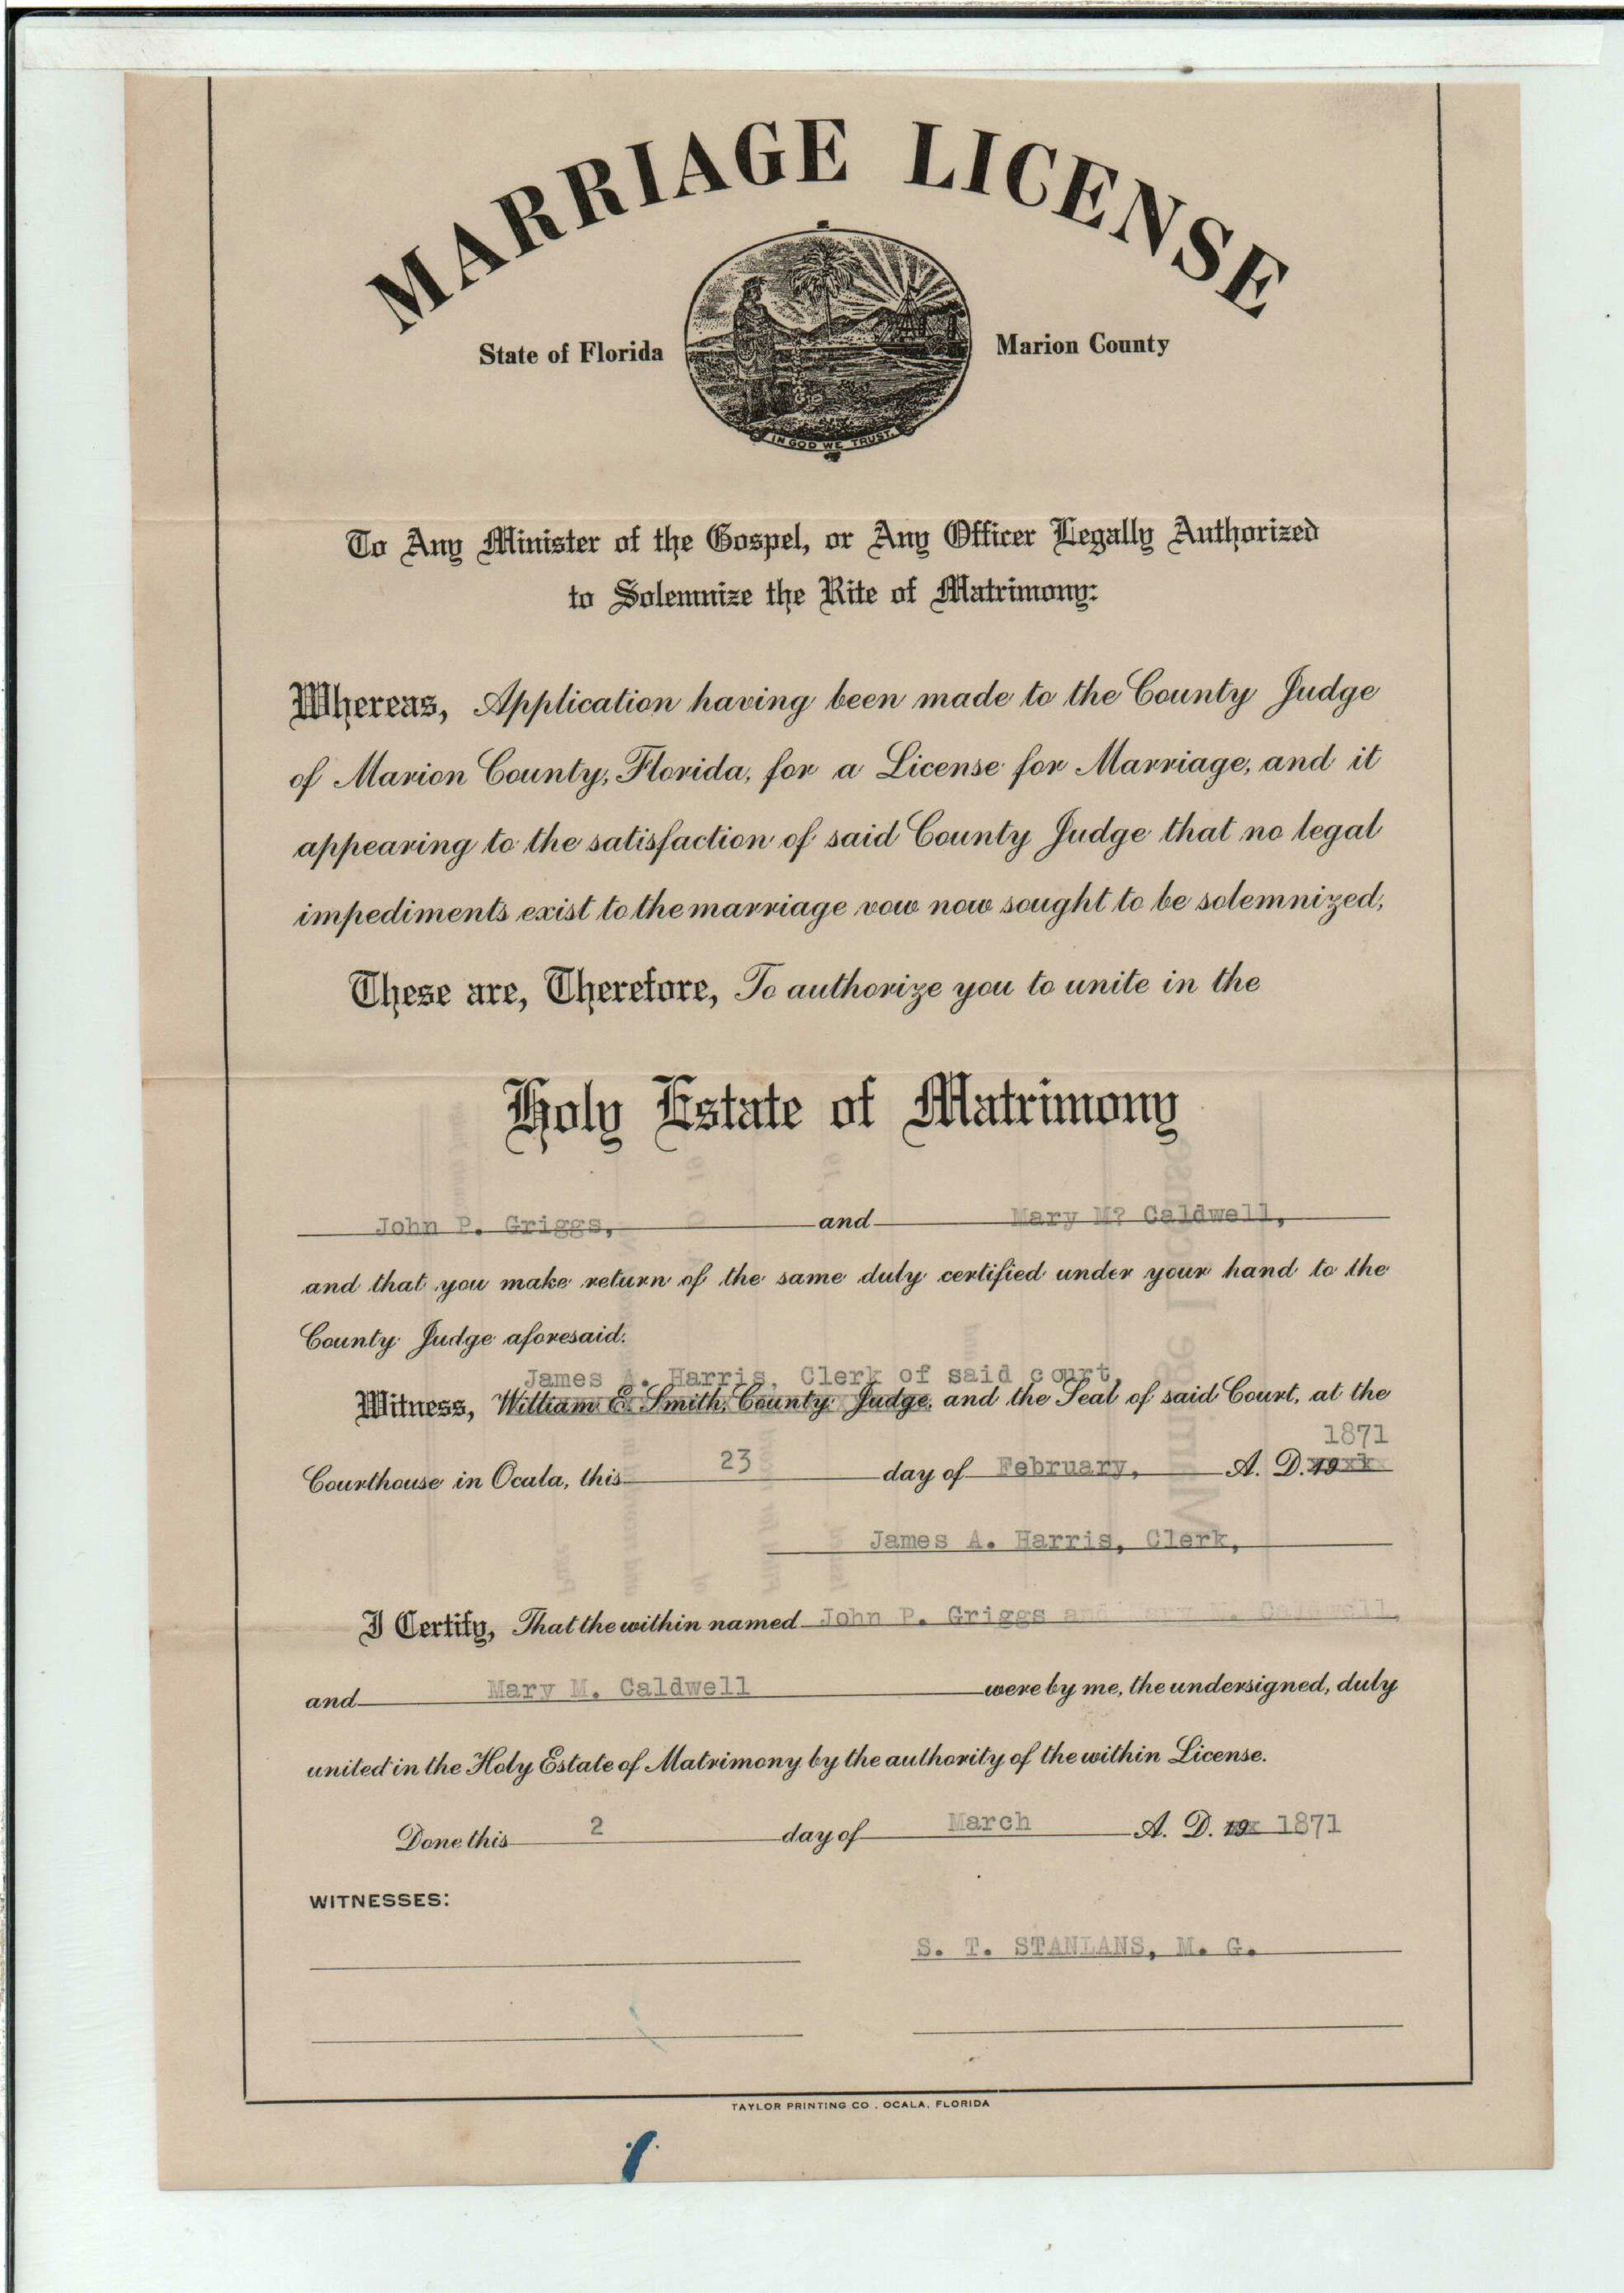 MARRIAGE LICENSE
State of Florida
Marion County
IN GOD WE TRUST.
To Any Minister of the Gospel, or Any Officer Legally Authorized
to Solemnize the Rite of Matrimony:
Whereas, Application having been made to the County Judge
of Marion County, Florida, for a License for Marriage, and it
appearing to the satisfaction of said County Judge that no legal
impediments exist to the marriage vow now sought to be solemnized,
These are, Therefore, To authorize you to unite in the
Holy Estate of Matrimony
John P. Griggs, and Mary M? Caldwell,
and that you make return of the same duly certified under your hand to the
County Judge aforesaid.
James A. Harris, Clerk of said court,
Witness, William E. Smith, County Judge, and the Seal of said Court, at the
1871
Courthouse in Ocala, this 23 day of February, A. D. 19xxk
James A. Harris, Clerk,
I Certify, That the within named John P. Griggs and Mary M. Caldwell,
and Mary M. Caldwell were by me, the undersigned, duly
united in the Holy Estate of Matrimony by the authority of the within License.
Done this 2 day of March A. D. 19 1871
WITNESSES:
S. T. STANLANS, M. G.
TAYLOR PRINTING CO. OCALA, FLORIDA